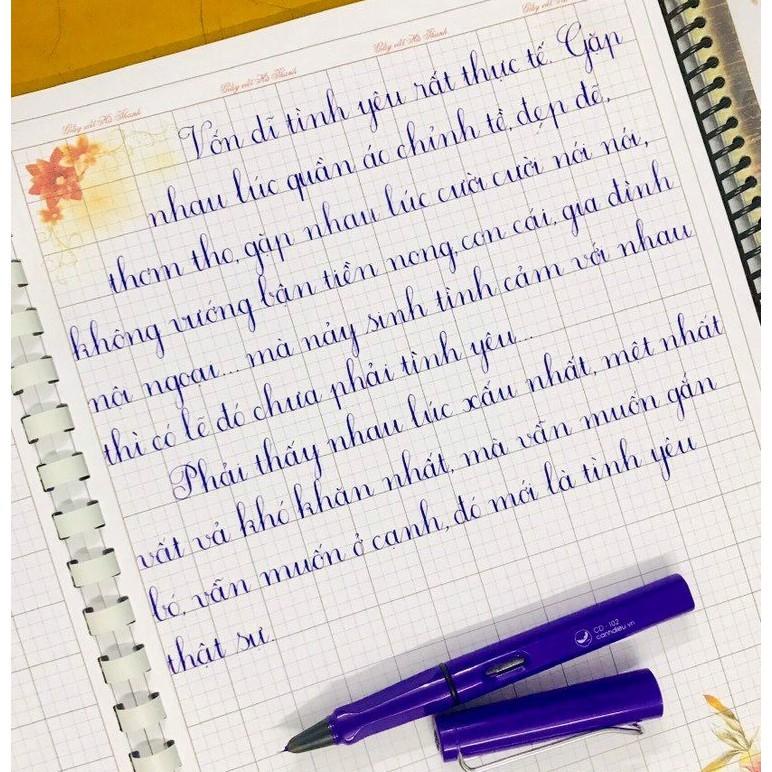 Giấy viết Hà Thanh
Giấy viết Hà Thanh
Giấy viết Hà Thanh
Vốn dĩ tình yêu rất thực tế. Gặp
nhau lúc quần áo chỉnh tề, đẹp đẽ,
thơm tho, gặp nhau lúc cười cười nói nói,
không vướng bận tiền nong, con cái, gia đình
nội ngoại... mà nảy sinh tình cảm với nhau
thì có lẽ đó chưa phải tình yêu...
Phải thấy nhau lúc xấu nhất, mệt nhất
vất vả khó khăn nhất, mà vẫn muốn gắn
bó, vẫn muốn ở cạnh, đó mới là tình yêu
thật sự.
CD-102
canhdieu.vn